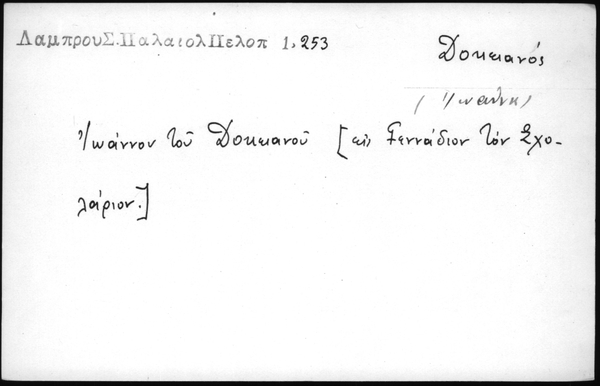 ΛαμπρουΣ.ΠαλαιολΠελοπ 1,253
Δοκειανός
(Ἰωάννης)
Ἰωάννου τοῦ Δοκειανοῦ [εἰς Γεννάδιον τὸν Σχο-
λάριον.]